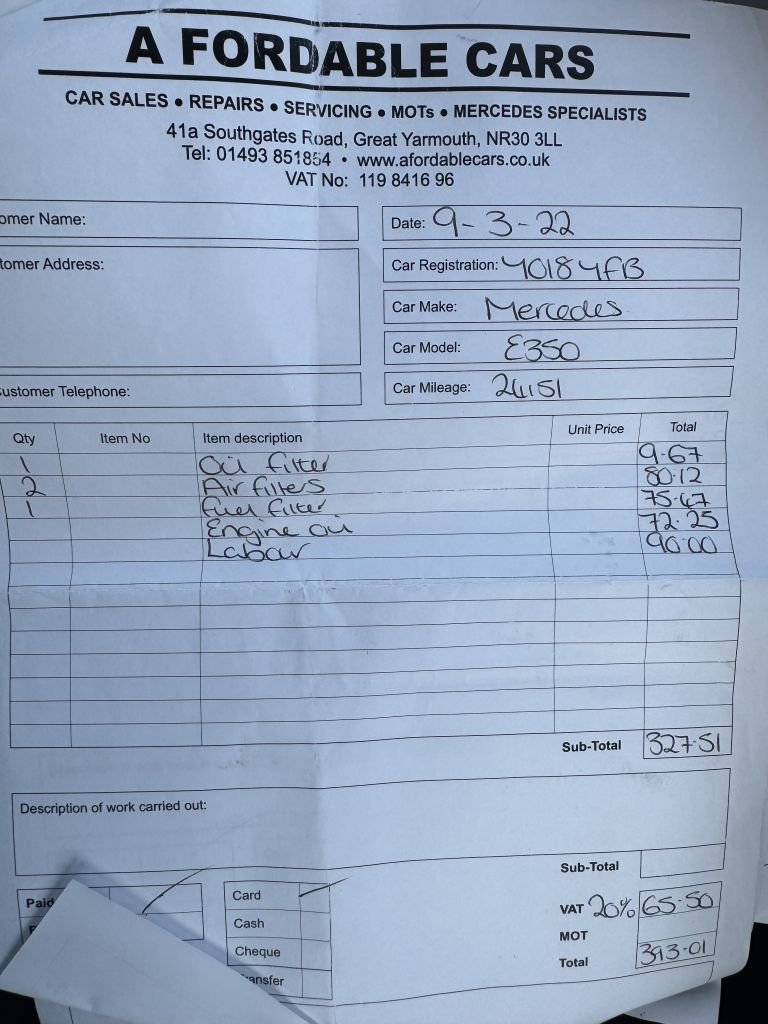 A FORDABLE CARS
CAR SALES • REPAIRS • SERVICING • MOTs • MERCEDES SPECIALISTS
41a Southgates Road, Great Yarmouth, NR30 3LL
Tel: 01493 851854 • www.afordablecars.co.uk
VAT No: 119 8416 96
omer Name:
Date: 9-3-22
tomer Address:
Car Registration: YO18 YFB
Car Make: Mercedes
Car Model: E350
ustomer Telephone:
Car Mileage: 24151
Qty Item No Item description Unit Price Total
1 Oil filter 9.67
2 Air filters 80.12
1 Fuel filter 75.47
Engine oil 72.25
Labour 90.00
Sub-Total 327.51
Description of work carried out:
Sub-Total
Paid
Card
VAT 20% 65.50
Cash
MOT
Cheque
Total 393.01
ansfer